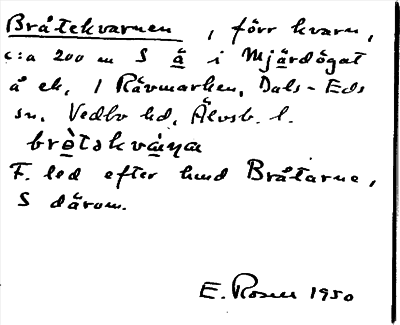 Bråtekvarnen, förr kvarn,
c:a 200 m S ä i Mjärdögat
å ek, 1 Rävmarken, Dals-Eds
sn, Vedbo hd, Älvsb. l.
brètskvána
F. led efter hmd Bråtarne,
S därom.
E. Rosell 1950